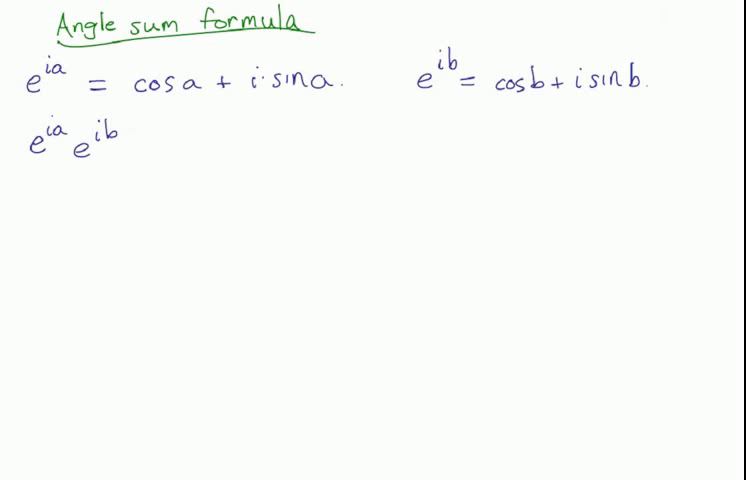 Angle sum formula
e^{ia} = cos a + i · sin a. e^{ib} = cos b + i sin b.
e^{ia} e^{ib}